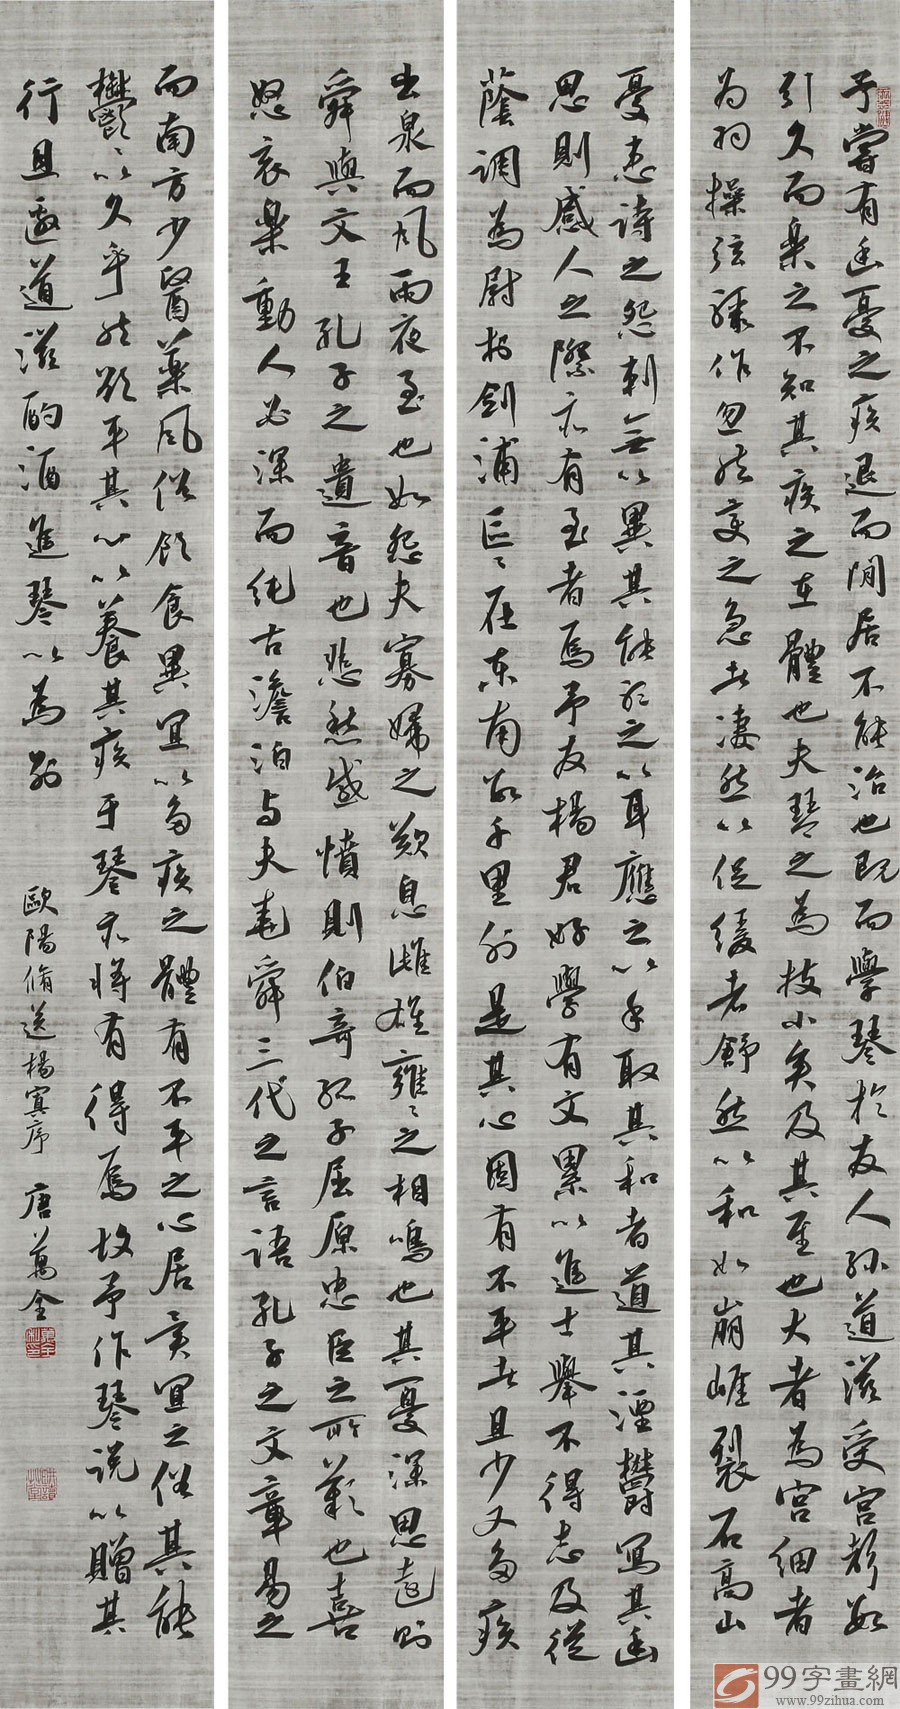 予嘗有幽憂之疾退而閒居不能治也既而學琴於友人孫道滋受宮聲數
引久而樂之不知其疾之在體也夫琴之為技小矣及其至也大者為宮細者
為羽操弦驟作忽然變之急者凄然以促緩者舒然以和如崩崖裂石高山
出泉而風雨夜至也如怨夫寡婦之歎息雌雄雍〻之相鳴也其憂深思遠則
舜與文王孔子之遺音也悲愁感憤則伯奇孤子屈原忠臣之所歎也喜
怒哀樂動人必深而純古澹泊與夫堯舜三代之言語孔子之文章易之
憂患詩之怨刺無以異其能聽之以耳應之以手取其和者道其湮鬱寫其幽
思則感人之際亦有至者焉予友楊君好學有文累以進士舉不得志及從
蔭調為尉於劍浦區〻在東南數千里外是其心固有不平者且少又多疾
而南方少醫藥風俗飲食異宜以多疾之體有不平之心居異宜之俗其能
鬱〻以久乎然欲平其心以養其疾于琴亦將有得焉故予作琴說以贈其
行且邀道滋酌酒進琴以為別
歐陽脩送楊寘序 唐萬全
99字畫網
www.99zihua.com